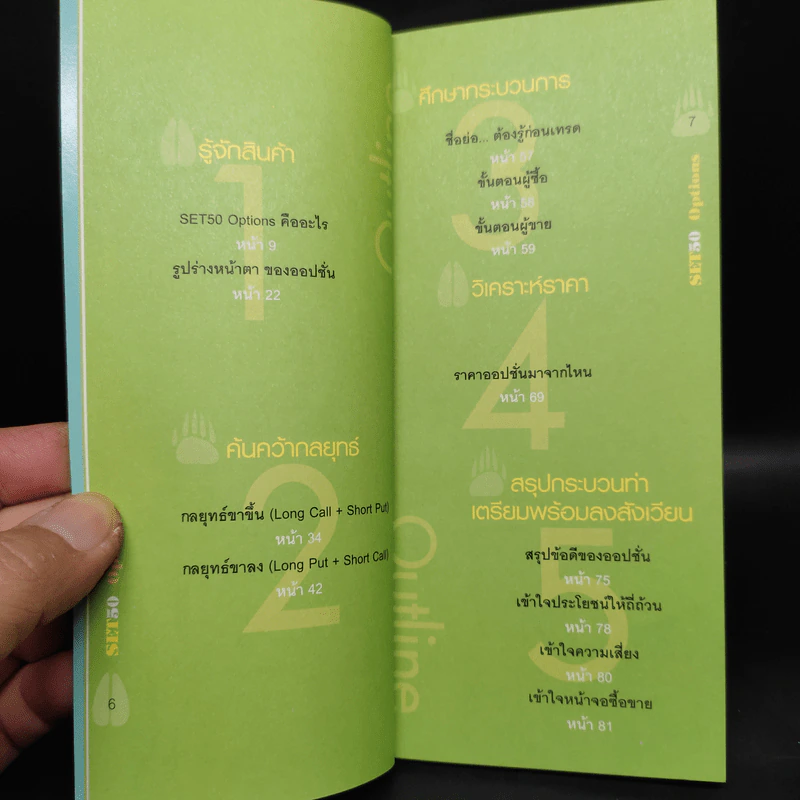 รู้จักสินค้า
1
SET50 Options คืออะไร
หน้า 9
รูปร่างหน้าตา ของออปชั่น
หน้า 22
ค้นคว้ากลยุทธ์
2
กลยุทธ์ขาขึ้น (Long Call + Short Put)
หน้า 34
กลยุทธ์ขาลง (Long Put + Short Call)
หน้า 42
SET50
6
ศึกษากระบวนการ
3
ชื่อย่อ... ต้องรู้ก่อนเทรด
หน้า 57
ขั้นตอนผู้ซื้อ
หน้า 58
ขั้นตอนผู้ขาย
หน้า 59
วิเคราะห์ราคา
4
ราคาออปชั่นมาจากไหน
หน้า 69
สรุปกระบวนท่า
เตรียมพร้อมลงสังเวียน
5
สรุปข้อดีของออปชั่น
หน้า 75
เข้าใจประโยชน์ให้ถี่ถ้วน
หน้า 78
เข้าใจความเสี่ยง
หน้า 80
เข้าใจหน้าจอซื้อขาย
หน้า 81
Outline
7
SET50 Options